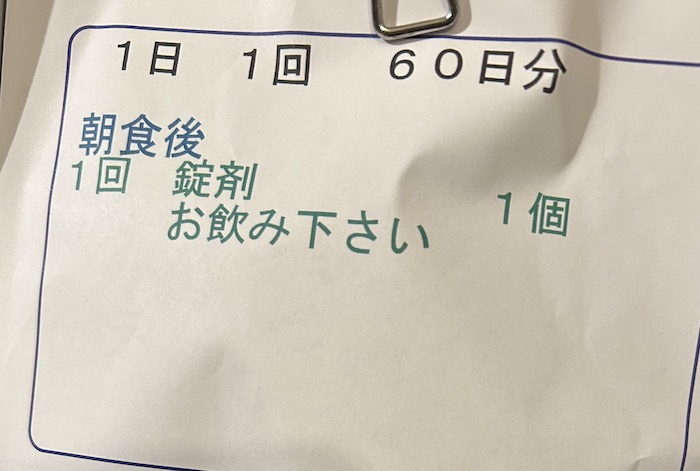 １日　１回　６０日分
朝食後
１回　錠剤　１個
お飲み下さい